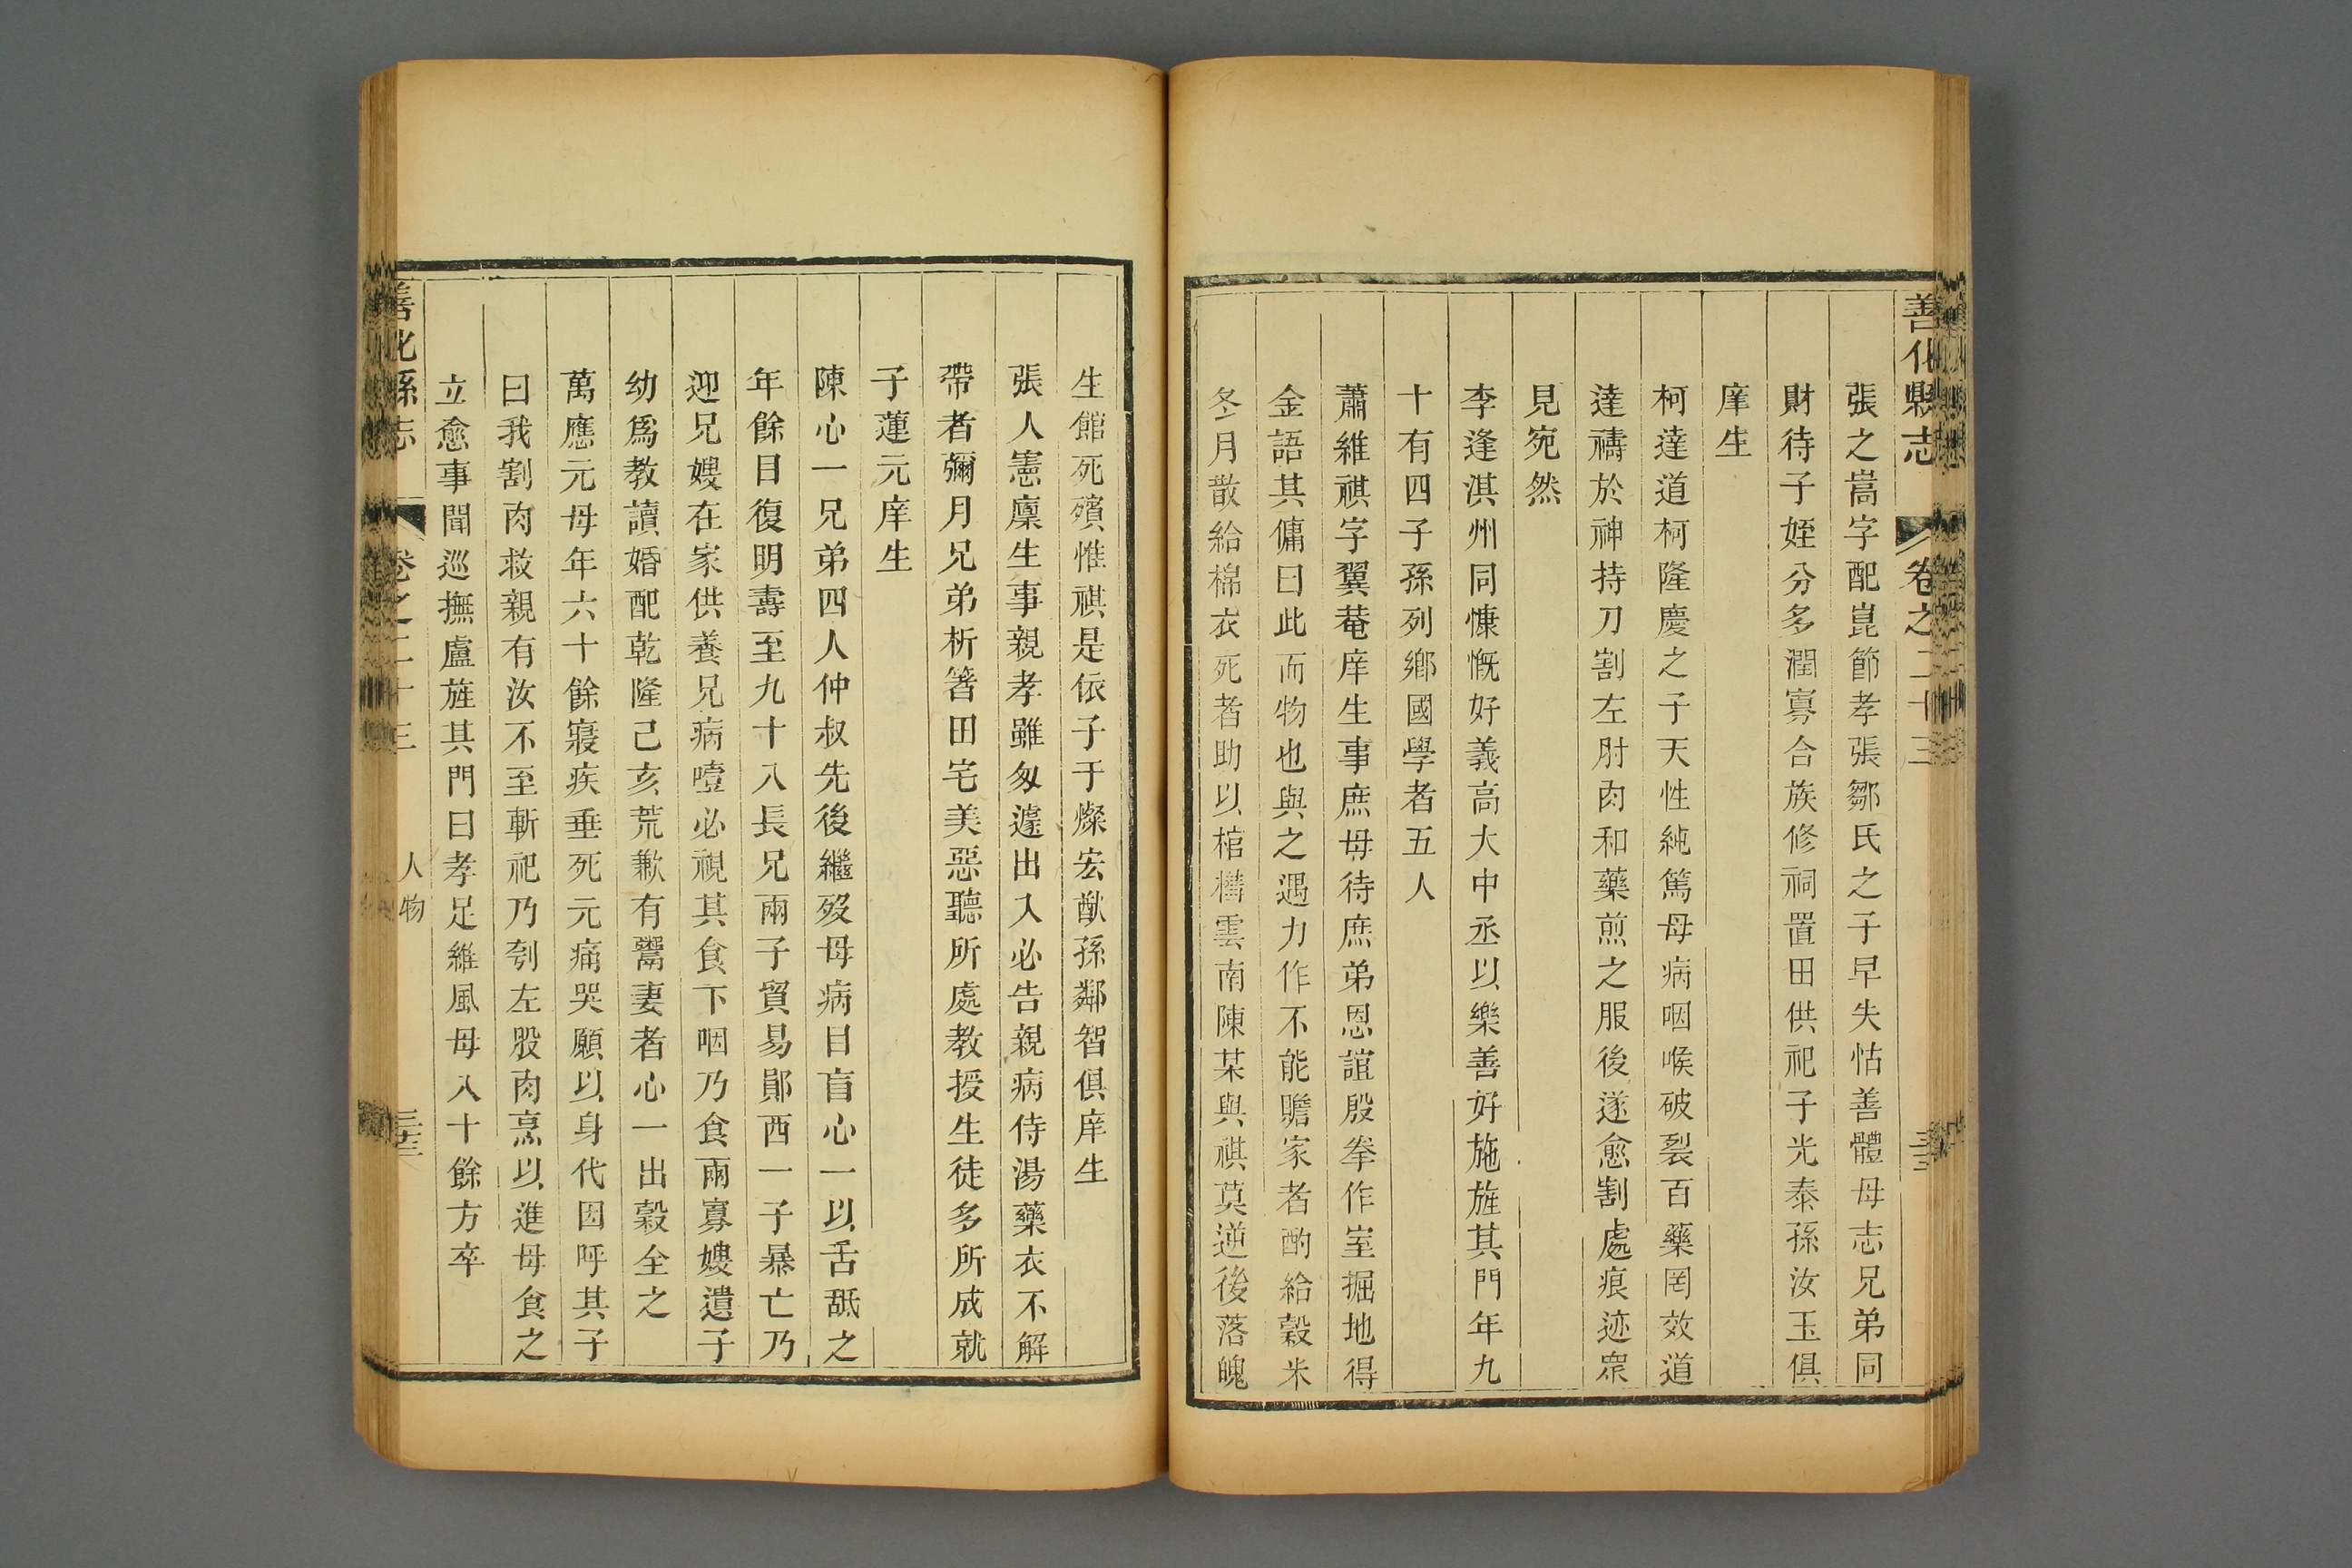 善化縣志 卷之二十三
張之嵩字配崑節孝張鄒氏之子早失怙善體母志兄弟同
財待子姪分多潤寡合族修祠置田供祀子光泰孫汝玉俱
庠生
柯達道柯隆慶之子天性純篤母病咽喉破裂百藥罔效道
達禱於神持刀割左肘肉和藥煎之服後遂愈割處痕迹眾
見宛然
李逢淇州同慷慨好義高大中丞以樂善好施旌其門年九
十有四子孫列鄉國學者五人
蕭維祺字翼菴庠生事庶母待庶弟恩誼殷拳作室掘地得
金語其傭曰此而物也與之遇力作不能贍家者酌給穀米
冬月散給棉衣死者助以棺槥雲南陳某與祺莫逆後落魄
生館死殯惟祺是依子于燦宏猷孫鄰智俱庠生
張人憲廩生事親孝雖匆遽出入必告親病侍湯藥衣不解
帶者彌月兄弟析箸田宅美惡聽所處教授生徒多所成就
子蓮元庠生
陳心一兄弟四人仲叔先後繼歿母病目盲心一以舌舐之
年餘目復明壽至九十八長兄兩子貿易鄖西一子暴亡乃
迎兄嫂在家供養兄病噎必視其食下咽乃食兩寡嫂遺子
幼爲教讀婚配乾隆己亥荒歉有鬻妻者心一出穀全之
萬應元母年六十餘寢疾垂死元痛哭願以身代因呼其子
曰我割肉救親有汝不至斬祀乃刳左股肉烹以進母食之
立愈事聞巡撫盧旌其門曰孝足維風母八十餘方卒
善化縣志 卷之二十三 人物